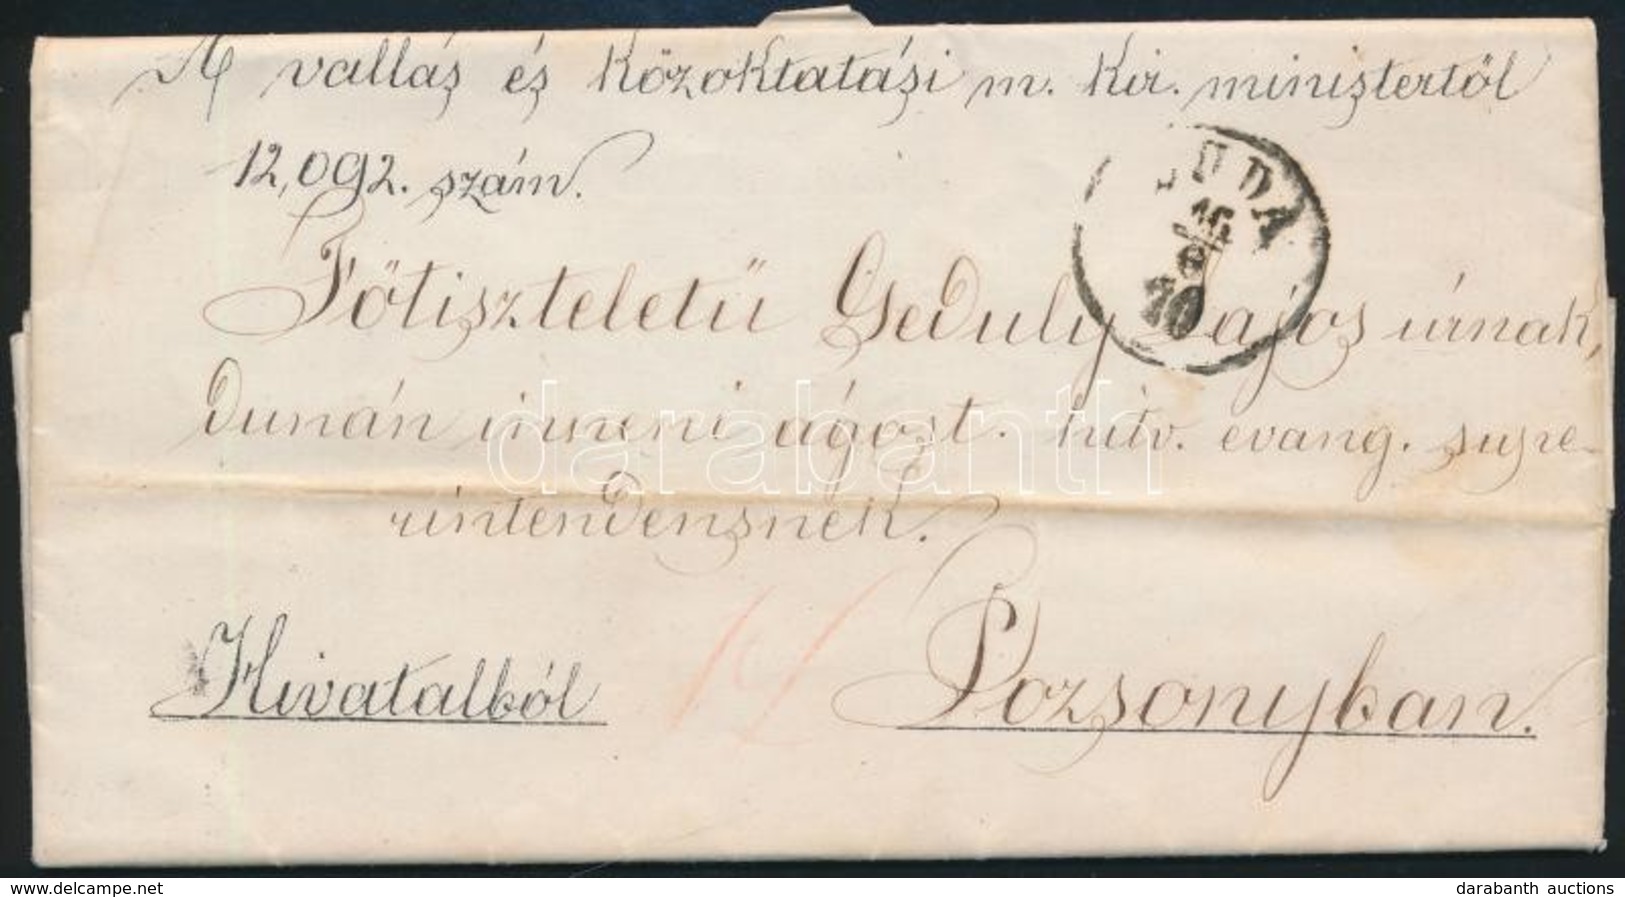 A vallás és közoktatási m. kir. ministertöl
12,092. szám.
BUDA
16
70
Főtiszteletű Geduly Lajos úrnak,
Dunán inneni ágost. hitv. evang. supe-
rintendensnek.
Hivatalból
Pozsonyban.
darabanth
www.delcampe.net
darabanth auctions